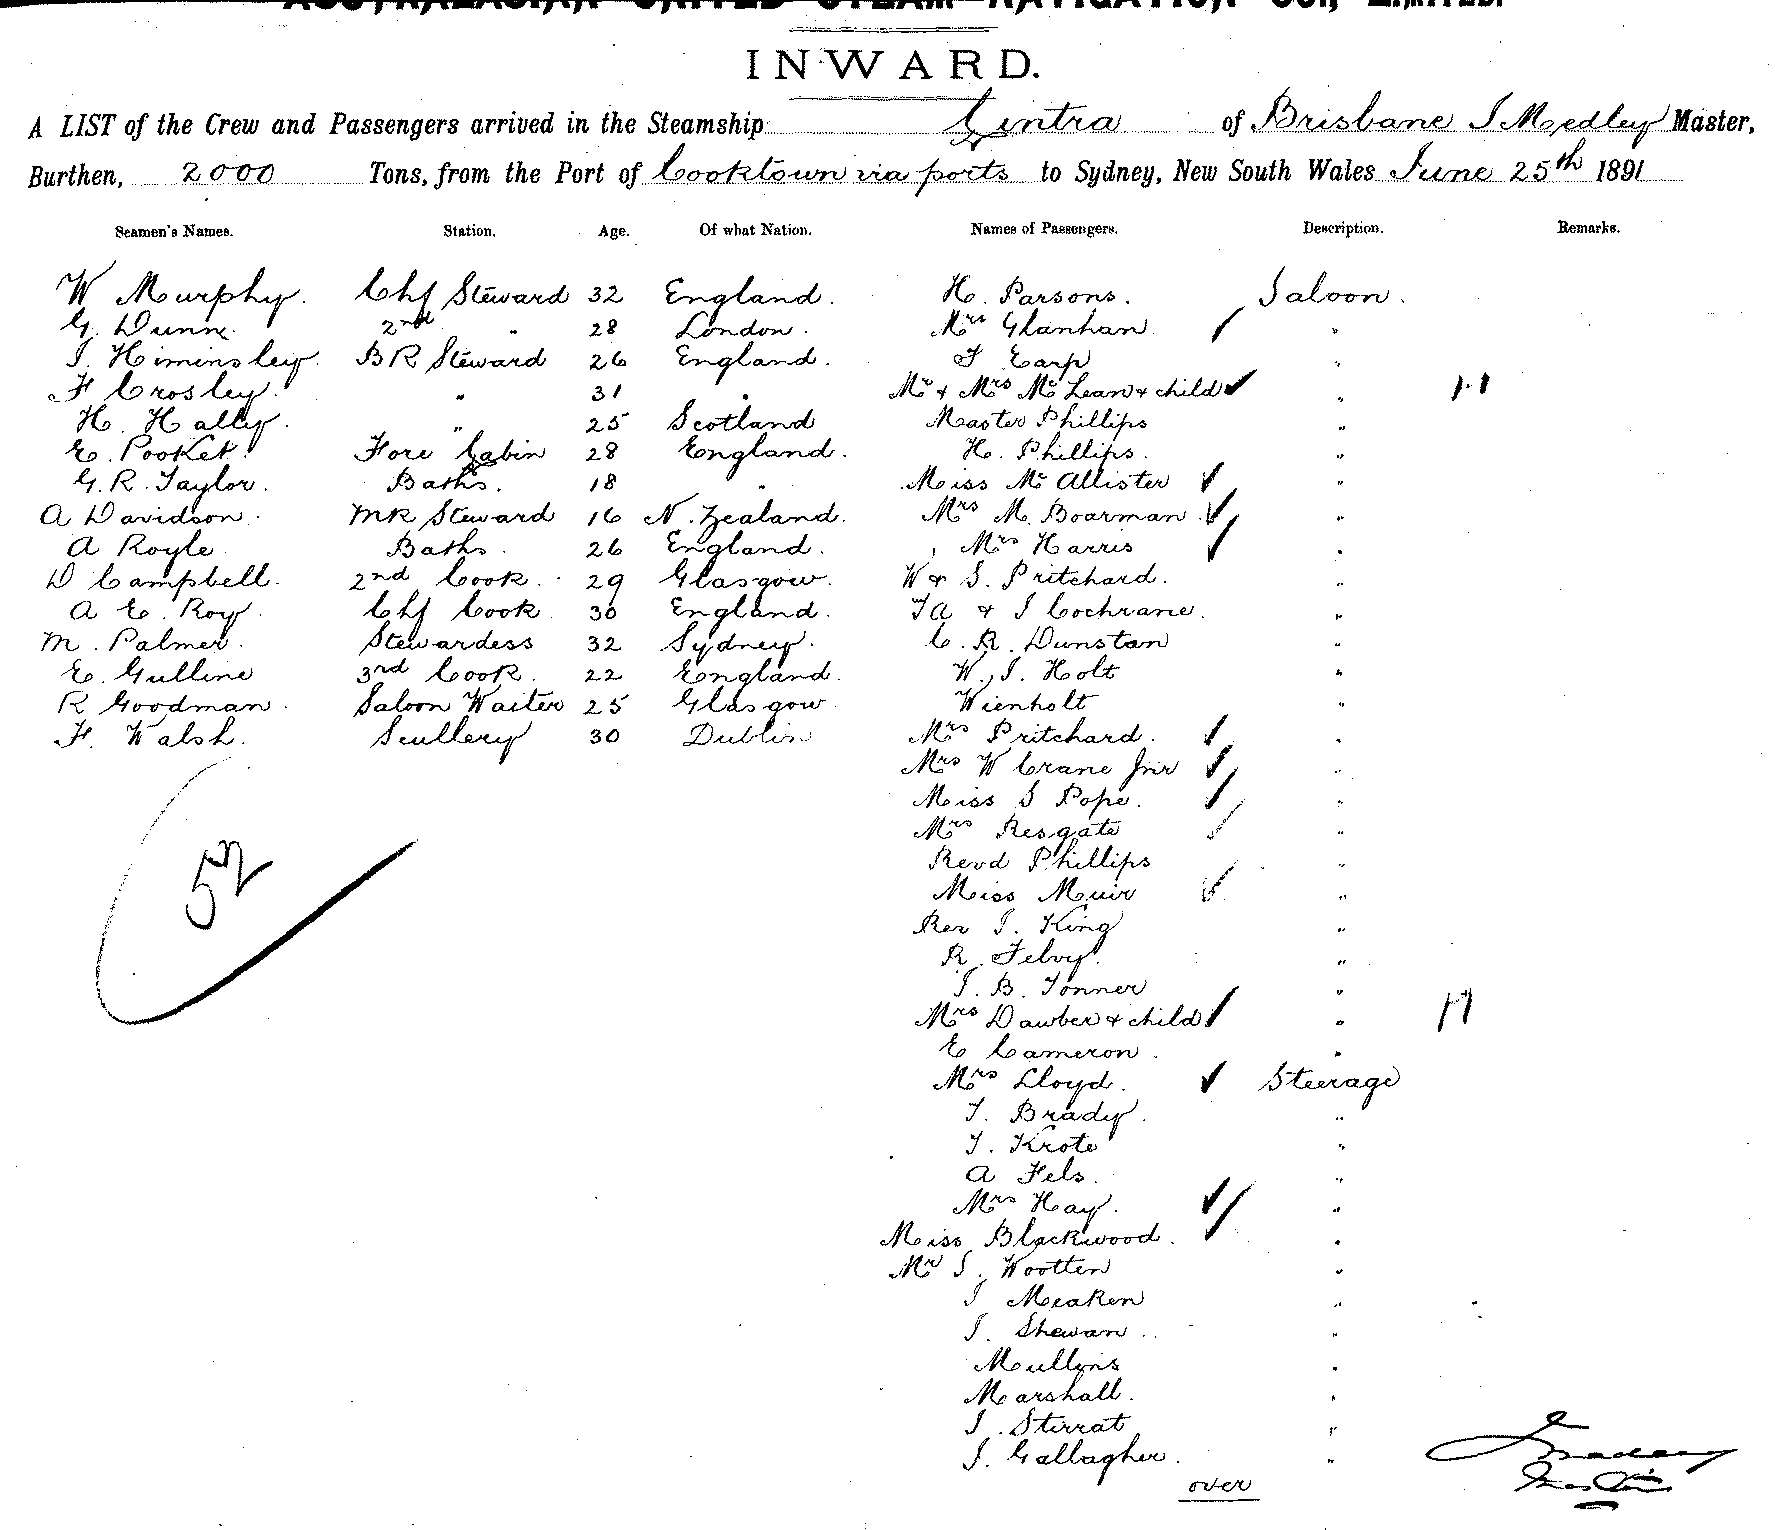 AUSTRALASIAN UNITED STEAM NAVIGATION CO., LIMITED.
INWARD.
A LIST of the Crew and Passengers arrived in the Steamship Cintra of Brisbane J Medley Master,
Burthen, 2000 Tons, from the Port of Cooktown via ports to Sydney, New South Wales June 25th 1891
Seamen's Names. Station. Age. Of what Nation. Names of Passengers. Description. Remarks.
W Murphy. Chf Steward 32 England. H. Parsons. Saloon.
G. Dunn. 2nd " 28 London. Mrs Glanhan "
J. Himinsley. B R Steward 26 England. T Earp "
F Crosley. " 31 " Mr & Mrs Mc Lean & child "
H. Hally. " 25 Scotland Master Phillips "
E. Pooket. Fore Cabin 28 England. H. Phillips. "
G. R. Taylor. Baths. 18 " Miss Mc Allister "
A Davidson. MR Steward 16 N. Zealand. Mrs M. Boarman. "
A Royle Baths. 26 England. Mrs Harris "
D Campbell. 2nd Cook. 29 Glasgow. W & S. Pritchard. "
A E. Roy. Chf Cook 30 England. T A & J Cochrane. "
M. Palmer. Stewardess 32 Sydney. C. R. Dunstan "
E. Gulline 3rd Cook. 22 England. W. J. Holt "
R Goodman. Saloon Waiter 25 Glasgow. Wienholt "
F. Walsh. Scullery 30 Dublin Mrs Pritchard. "
Mrs W Crane Jnr "
Miss S Pope. "
52 Mrs Resgate "
Revd Phillips "
Miss Muir "
Rev J. King "
R. Felvy. "
J. B. Tonner "
Mrs Dawber & child "
E Cameron. "
Mrs Lloyd. Steerage
T. Brady. "
T. Krote "
A Fels. "
Mrs Hay. "
Miss Blackwood. "
Mr J. Wootten "
J Meaken "
J. Shewan "
Mullins "
Marshall. "
J. Stirrat "
J. Gallagher. "
over